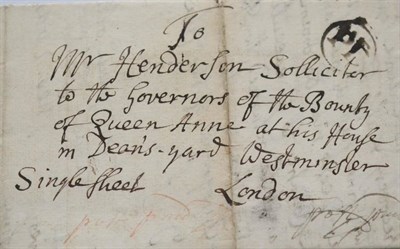 To
Mr Henderson Solliciter
to the Governors of the Bounty
of Queen Anne at his House
in Deans-yard Westminster
Single sheet London